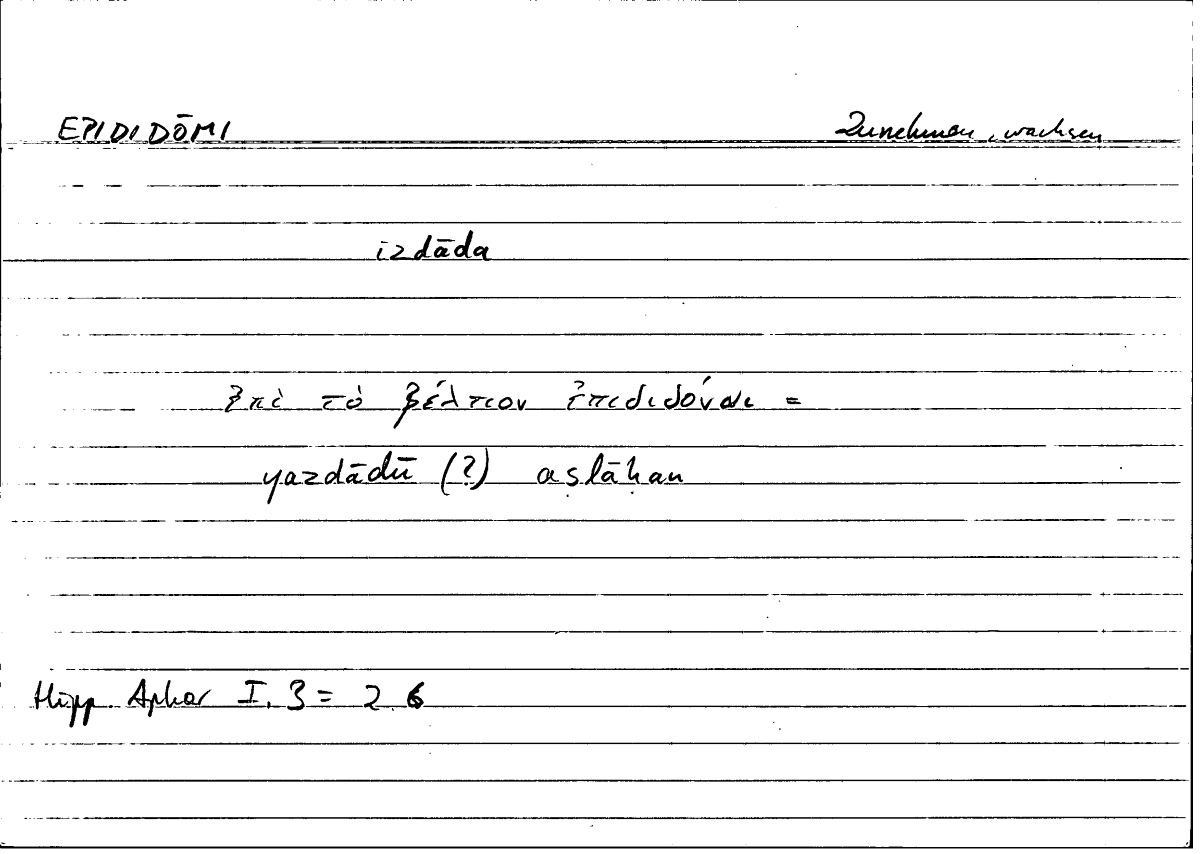 EPIDIDŌMI zunehmen, wachsen
izdāda
ἐπὶ τὸ βέλτιον ἐπιδιδόναι =
yazdādū (?) aṣlāḥan
Hipp. Aphor I, 3 = 2. 6